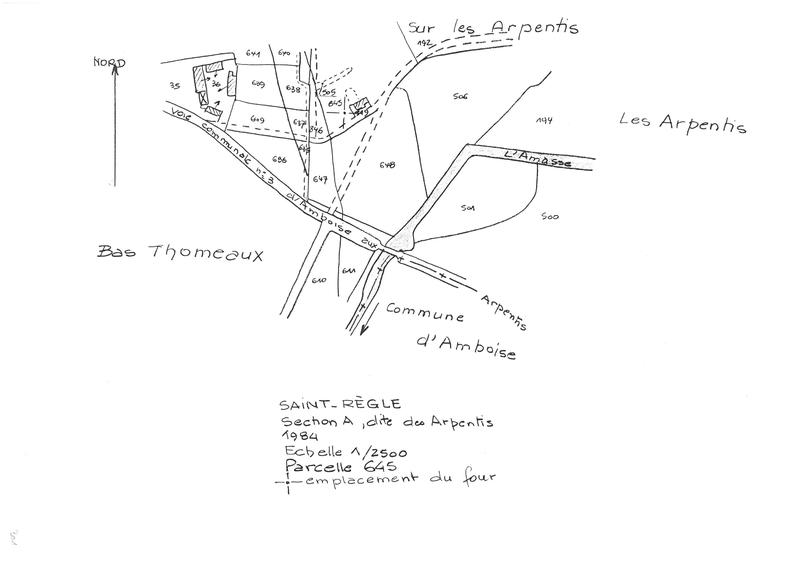 Sur les Arpentis
192
NORD
641
640
35
36
639
638
505
645
506
194
Les Arpentis
609
637
346
L'Amasse
Voie communale n: 3 d'Amboise aux Arpentis
636
647
648
501
500
Bas Thomeaux
610
611
Commune
d'Amboise
SAINT-RÈGLE
Section A, dite des Arpentis
1984
Echelle 1/2500
Parcelle 645
emplacement du four